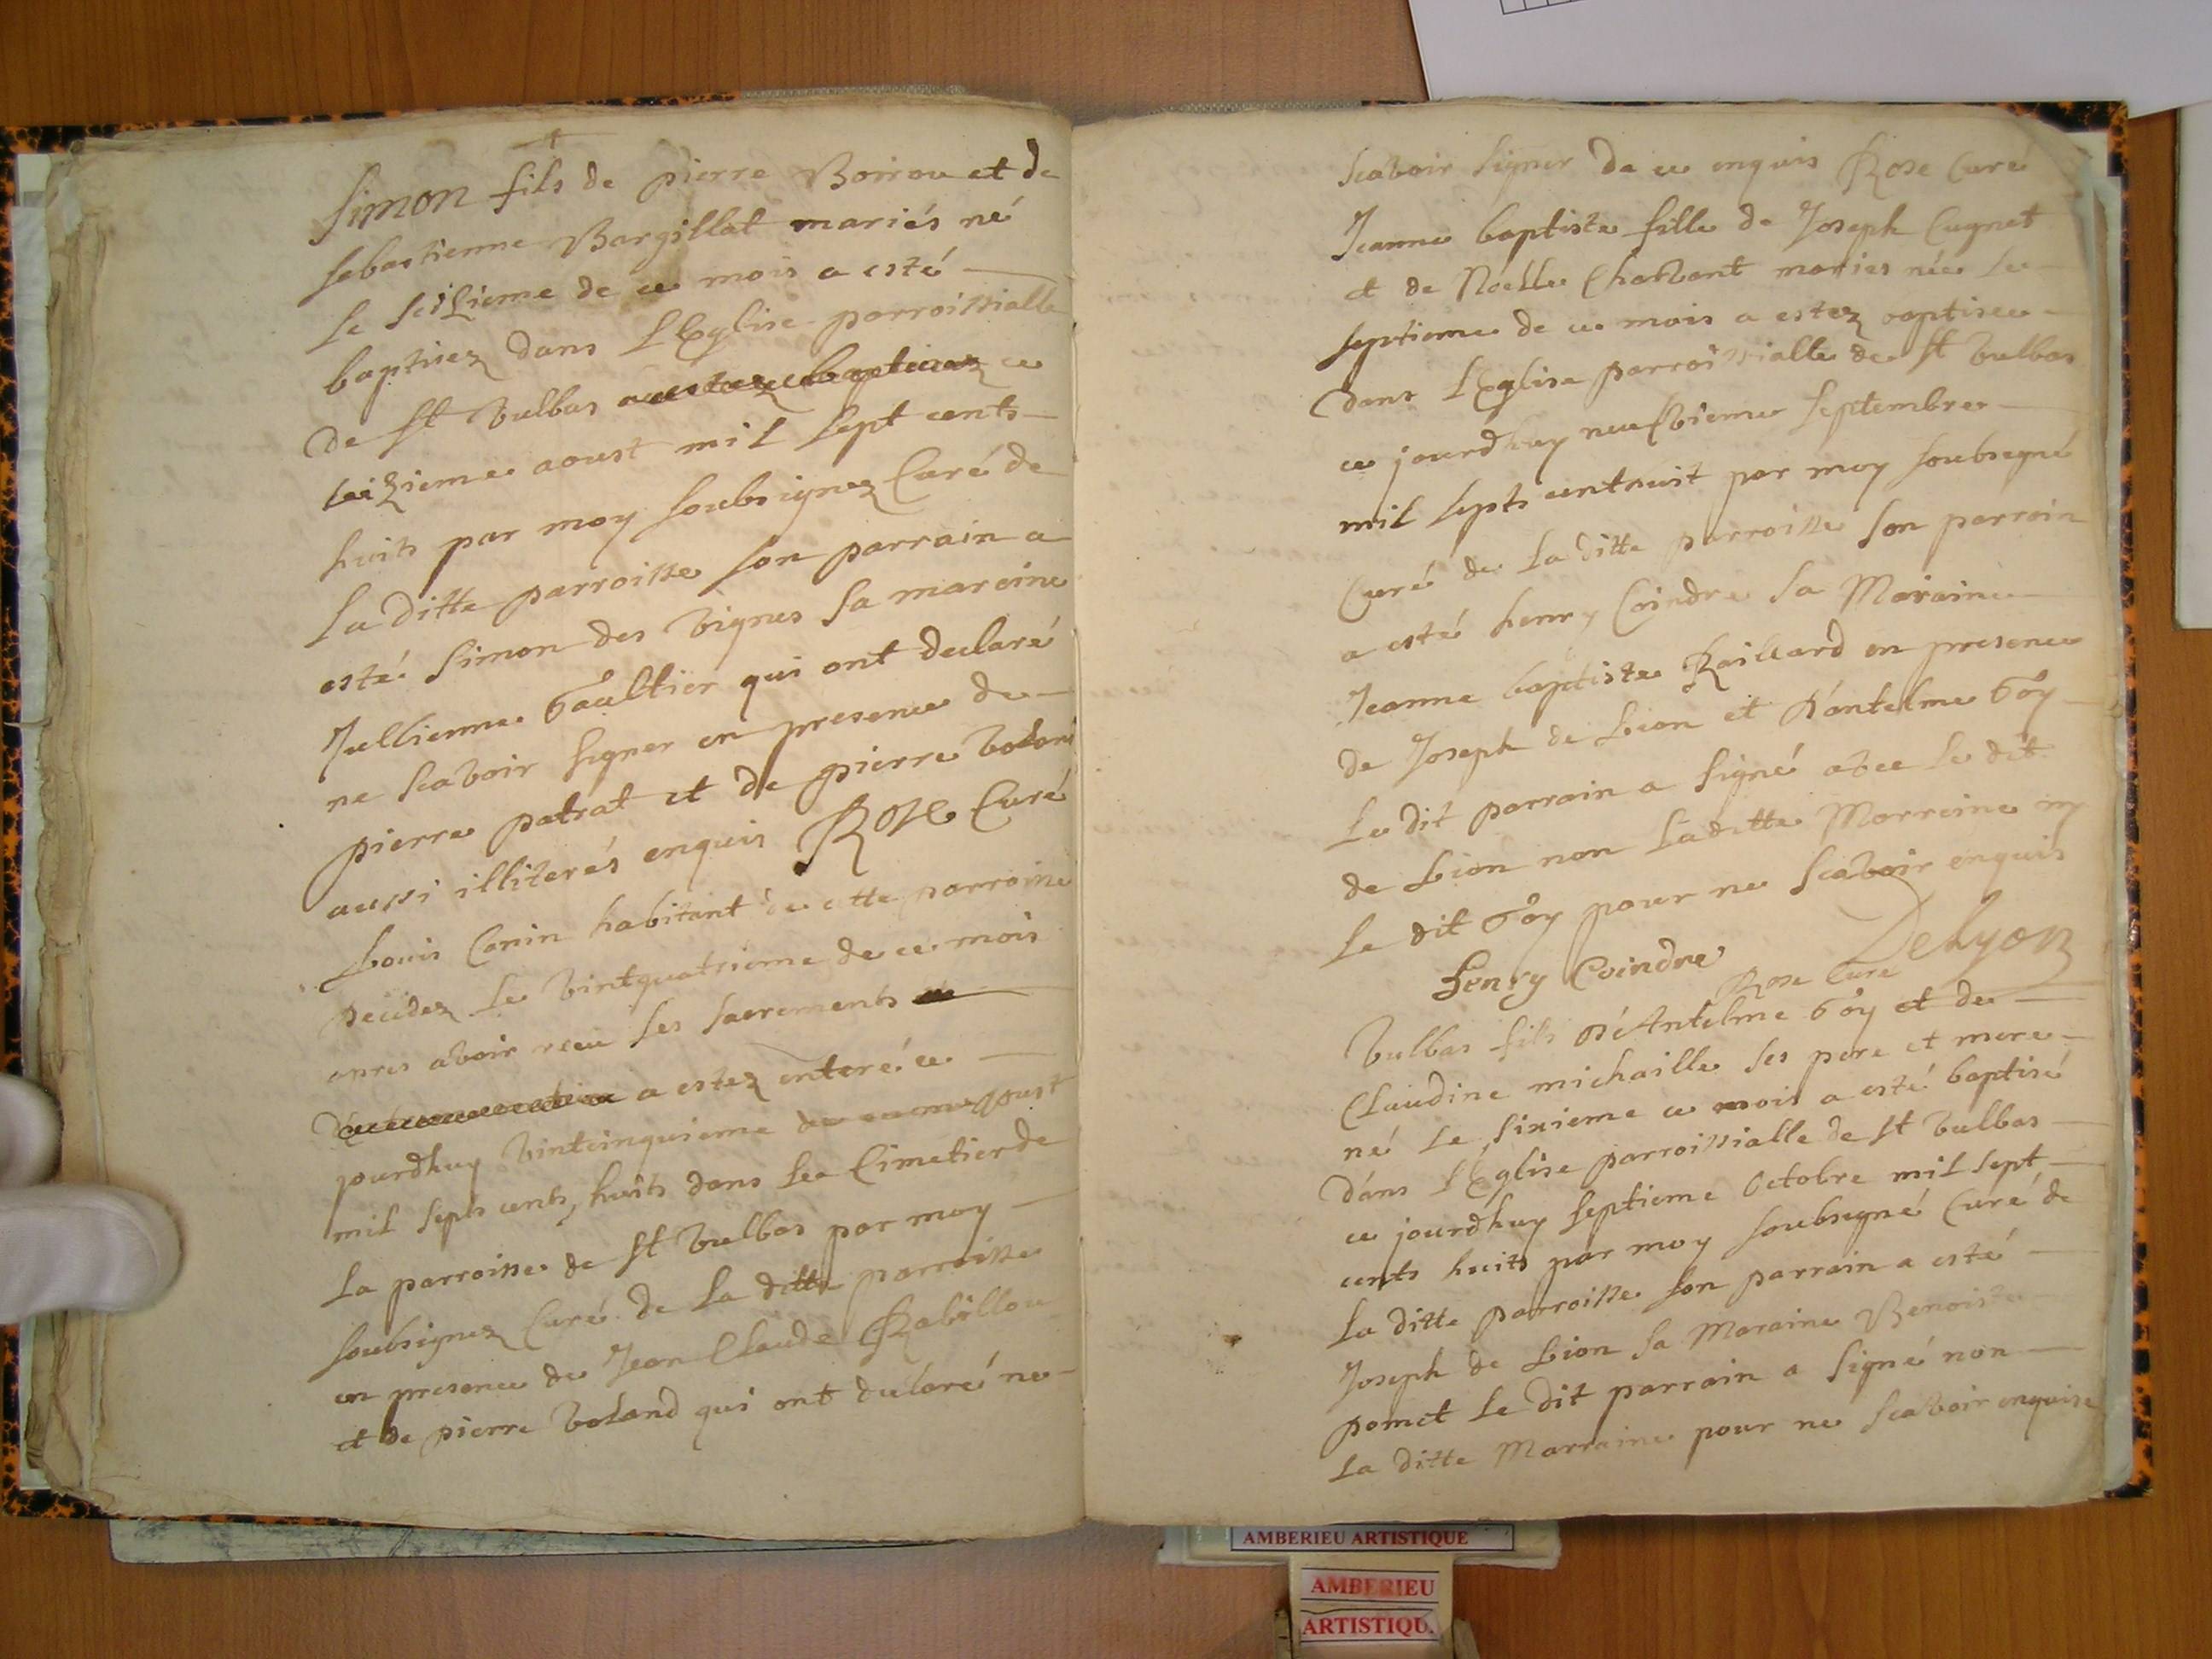 Simon fils de pierre Boirou et de
sebastienne Bargillat mariés né
le seiZieme de ce mois a esté
baptisez dans L'Eglise parroissialle
de st Vulbas a estez baptisez ce
seiZieme aoust mil sept cents
huits par moy soubsignez Curé de
La ditte parroisse son parrain a
esté Simon des Vignes sa mareine
Jullienne Gaultier qui ont declaré
ne scavoir signer en presence de
pierre patrat et de pierre Voland
aussi illiterés enquis Rose Curé
Louis Conin habitant de cette parroisse
decidez le vintquatrieme de ce mois
apres avoir receu les sacrements
a estez enteré ce
jourdhuy vintcinquieme aoust
mil septs cents, huits dans Le Cimetier de
La parroisse de st Vulbas par moy
soubsignez Curé de La ditte parroisse
en presence de Jean Claude Rabillou
et de pierre Voland qui ont declaré ne
scavoir signer de ce enquis Rose Curé
Jeanne baptiste fille de Joseph Cugnet
et de Noelle Chavant maries née le
septieme de ce mois a estez baptisee
dans L'Eglise parroissialle de st Vulbas
ce jourdhuy neufvieme septembre
mil septs centhuit par moy soubsegné
Curé de La ditte parroisse son parrain
a esté henry Coindre sa Maraine
Jeanne baptiste Raillard en presence
de Joseph de Lion et D'antelme Goy
Le dit parrain a signé avec le dit
de Lion non Laditte Marreine ny
Le dit Goy pour ne scavoir enquis
henry Coindre Delyon
Rose Curé
Vulbas fils D'Antelme Goy et de
Claudine michaille ses pere et mere
né Le sixieme ce mois a esté baptisé
dans L'Eglise parroissialle de st Vulbas
ce jourdhuy septieme Octobre mil sept
cents huits par moy soubsegné Curé de
La ditte parroisse son parrain a esté
Joseph de Lion sa Maraine Benoiste
pomet Le dit parrain a signé non
La ditte Marraine pour ne scavoir enquise
AMBERIEU ARTISTIQUE
AMBERIEU
ARTISTIQU